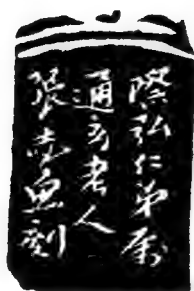 際弘仁弟屬
通玄老人
張志魚刻